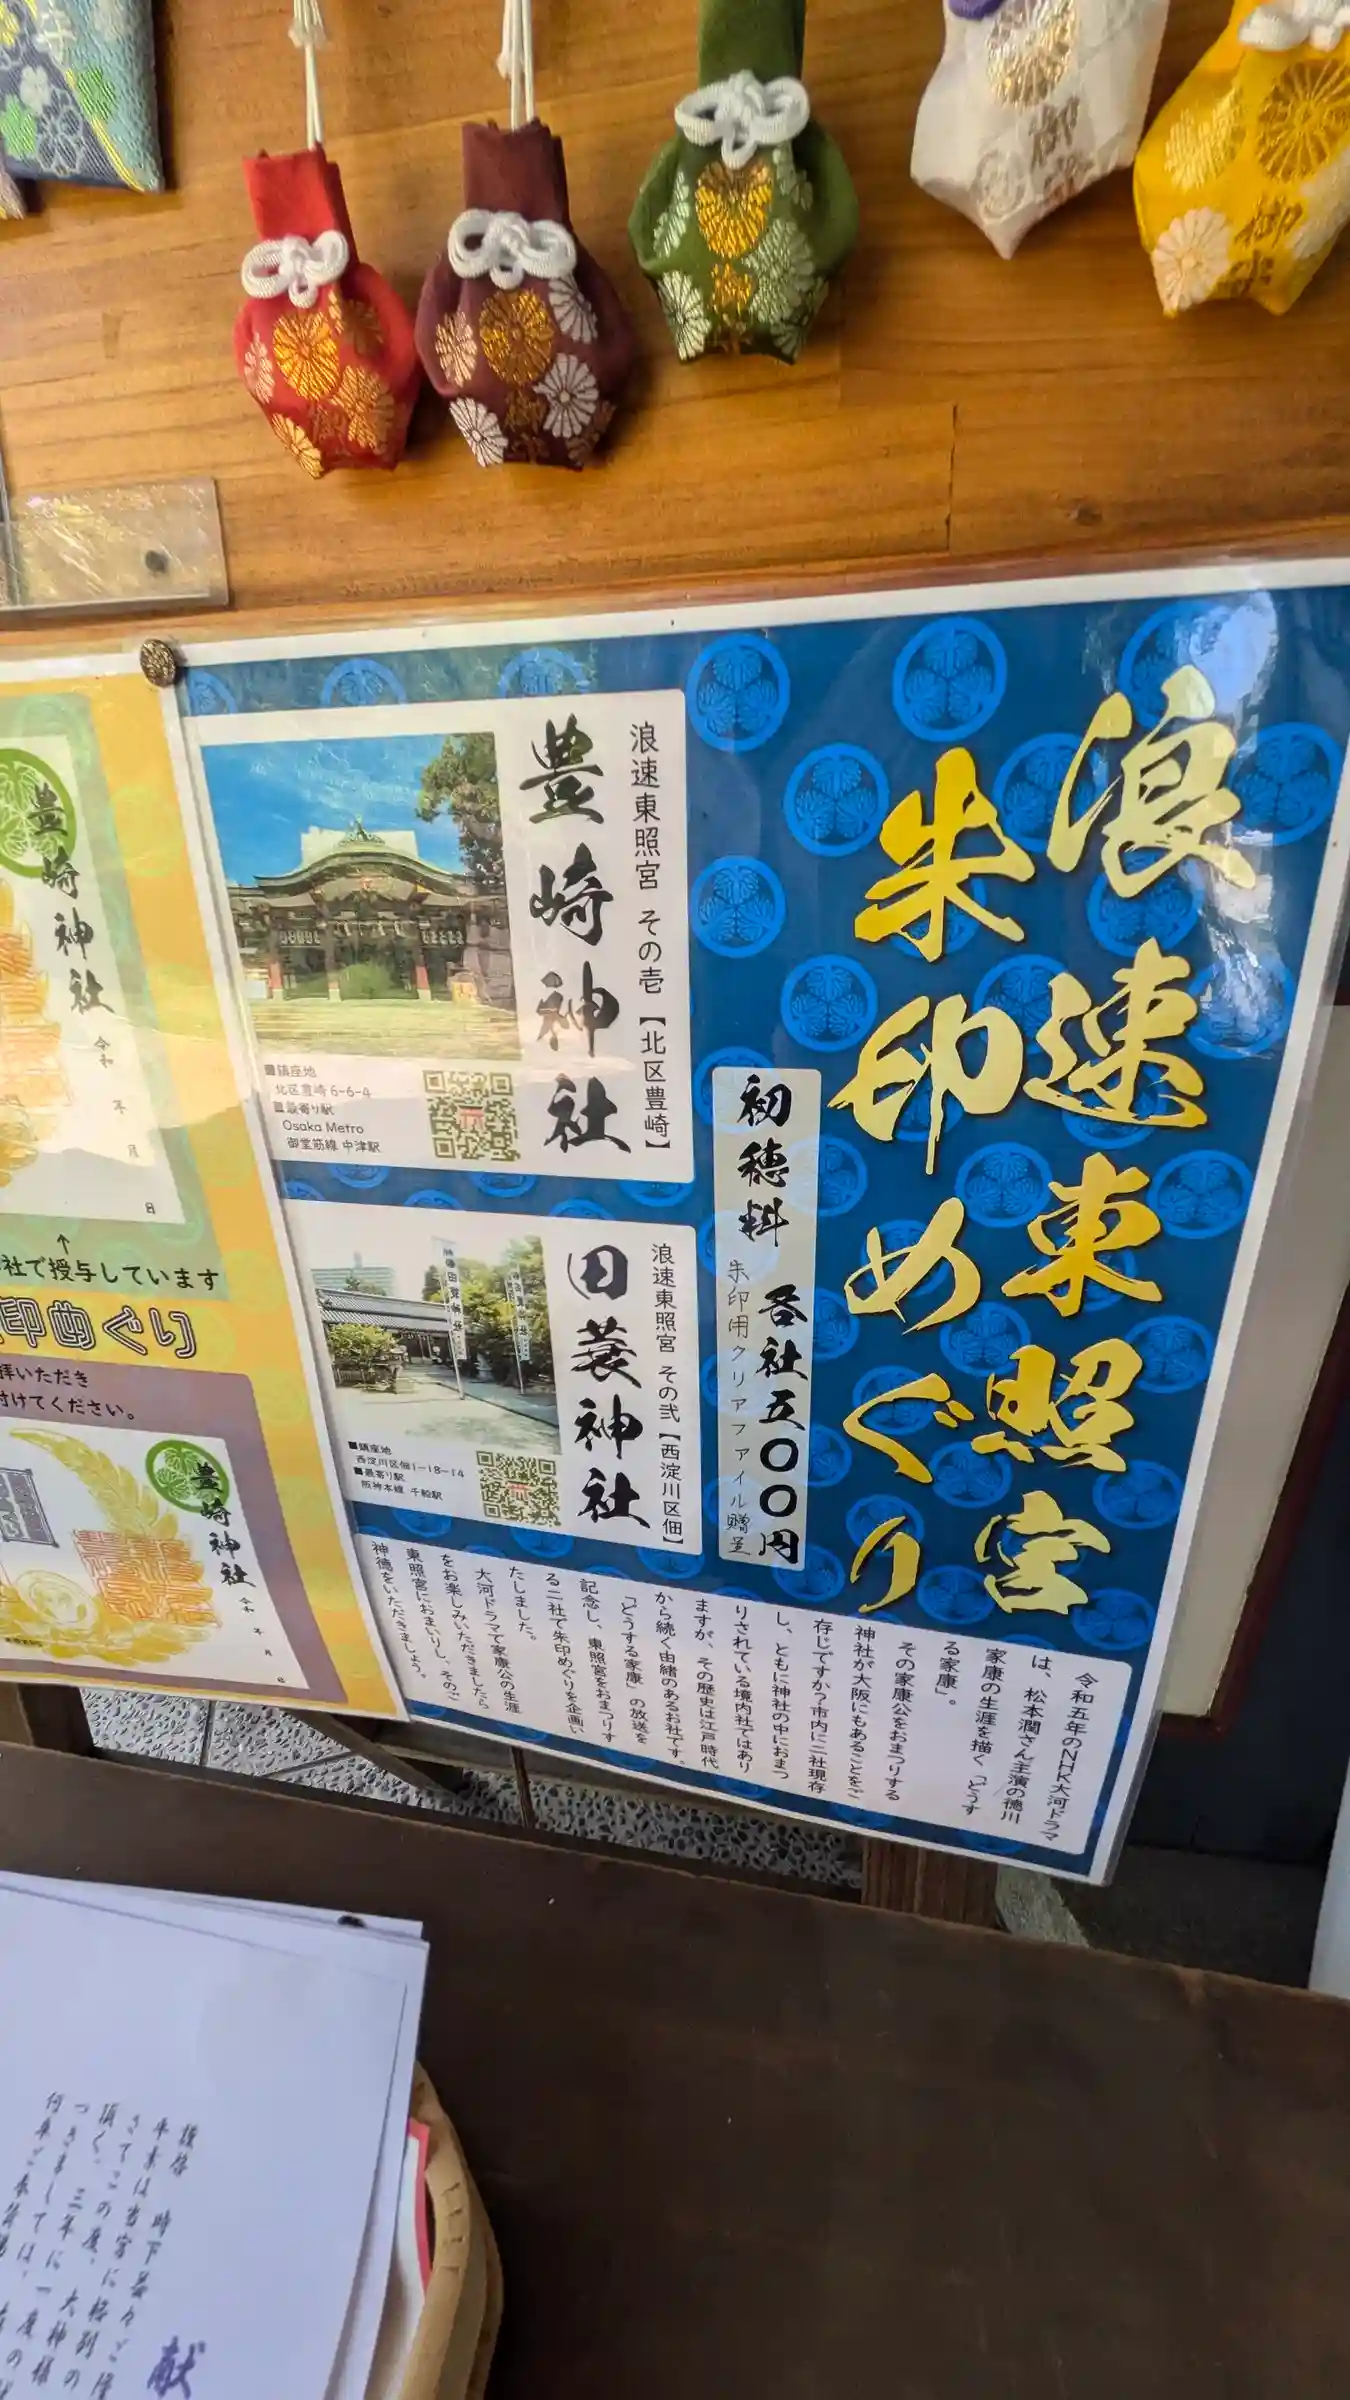 浪速東照宮
朱印めぐり
初穂料 各社五〇〇円
朱印用クリアファイル贈呈
浪速東照宮 その壱【北区豊崎】
豊崎神社
■鎮座地
北区豊崎 6-6-4
■最寄り駅
Osaka Metro
御堂筋線 中津駅
浪速東照宮 その弐【西淀川区佃】
田蓑神社
■鎮座地
西淀川区佃1-18-14
■最寄り駅
阪神本線 千船駅
令和五年のNHK大河ドラマ
は、松本潤さん主演の徳川
家康の生涯を描く「どうす
る家康」。
その家康公をおまつりする
神社が大阪にもあることをご
存じですか?市内に二社現存
し、ともに神社の中におまつ
りされている境内社ではあり
ますが、その歴史は江戸時代
から続く由緒のあるお社です。
「どうする家康」の放送を
記念し、東照宮をおまつりす
る二社で朱印めぐりを企画い
たしました。
大河ドラマで家康公の生涯
をお楽しみいただきましたら
東照宮におまいりし、そのご
神徳をいただきましょう。
豊崎神社
令和 年 月 日
↑
社で授与しています
印めぐり
拝いただき
付けてください。
豊崎神社
令和 年 月 日
謹啓 時下益々ご
年末は当宮に格別の
さてこの度、大神様
頂く、三年に一度の
つきましては、
何卒ご本
献